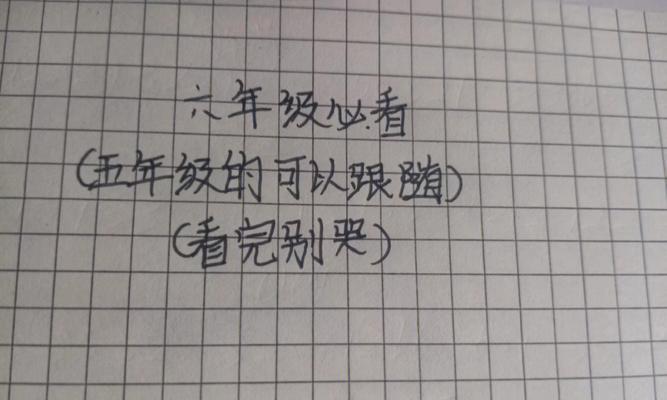 六年级必看
(五年级的可以跟随)
(看完别哭)